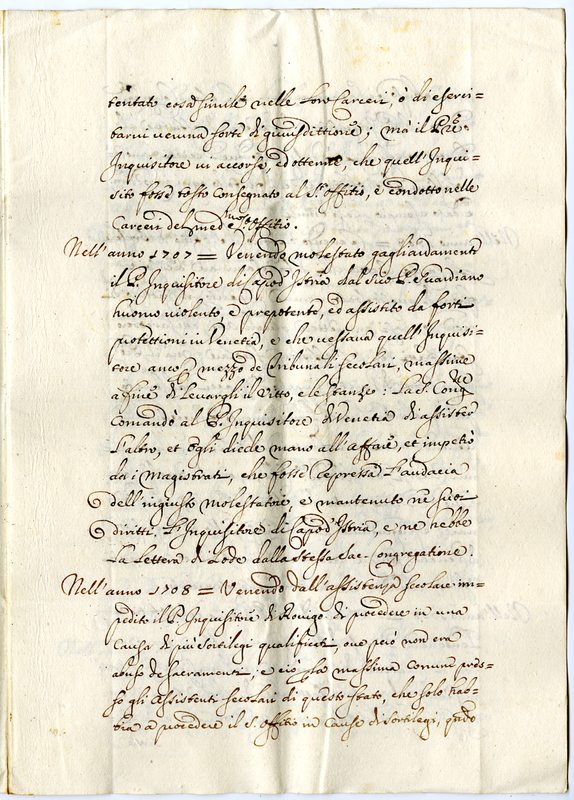 tentato cosa simile nelle loro Carceri, ò di eserci=
tarvi veruna sorte di giurisdittione; mà il P̃re
Inquisitore vi accorse, ed ottenne, che quell'Inqui=
sito fosse tosto consegnato al S. Offitio, e condotto nelle
Carceri del med.mo S. Offitio.
Nell'anno 1707 = Venendo molestato gagliardamente
il P. Inquisitore di Capod'Istria dal suo P. Guardiano
huomo violento, e prepotente, ed assistito da forti
protettioni in Venetia, e che vessava quell'Inquisi=
tore anco mezzo de Tribunali secolari, massime
a fine di levargli il Vitto, e le stanze: La S. Cong.ne
comandò al P. Inquisitore di Venetia di assister
l'altro, et egli diede mano all'affare, et impetrò
da i Magistrati, che fosse repressa l'audacia
dell'ingiusto molestatore, e mantenuto ne suoi
diritti l'Inquisitore di Capod'Istria, e ne hebbe
la lettera di lode dalla stessa Sac. Congregatione.
Nell'anno 1708 = Venendo dall'assistenza secolare im=
pedito il P. Inquisitore di Rovigo di procedere in una
causa di più sortilegi qualificati, ove però non era
abuso de sacramenti, e ciò p la massima comune pres=
so gli Assistenti secolari di questo stato, che solo hab=
bia a procedere il S. Offitio in cause di sortilegi, qñdo